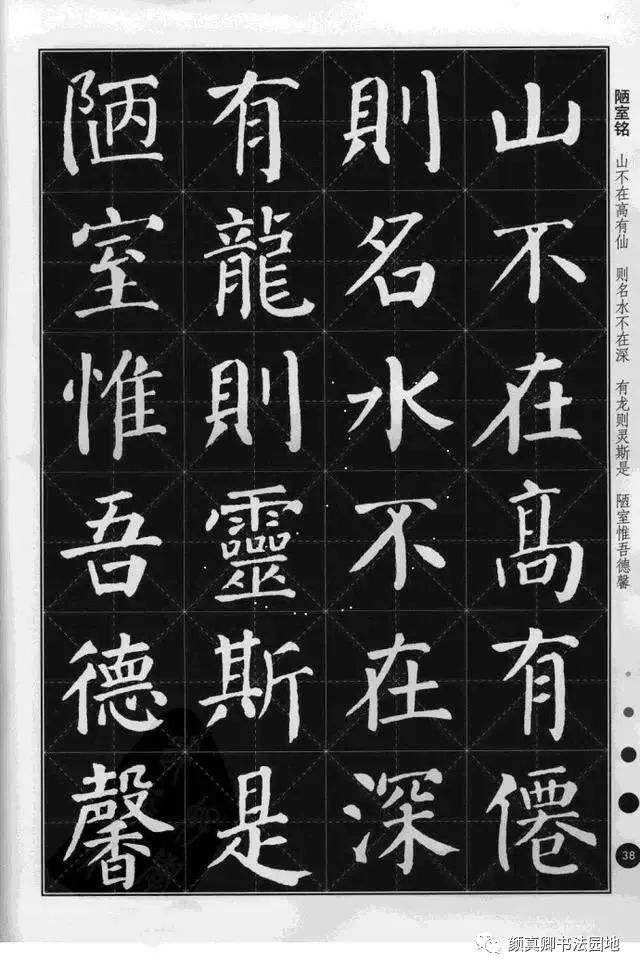 陋室铭
山不在高有仙 则名水不在深 有龙则灵斯是 陋室惟吾德馨
山不在高有僊
則名水不在深
有龍則靈斯是
陋室惟吾德馨
38
颜真卿书法园地